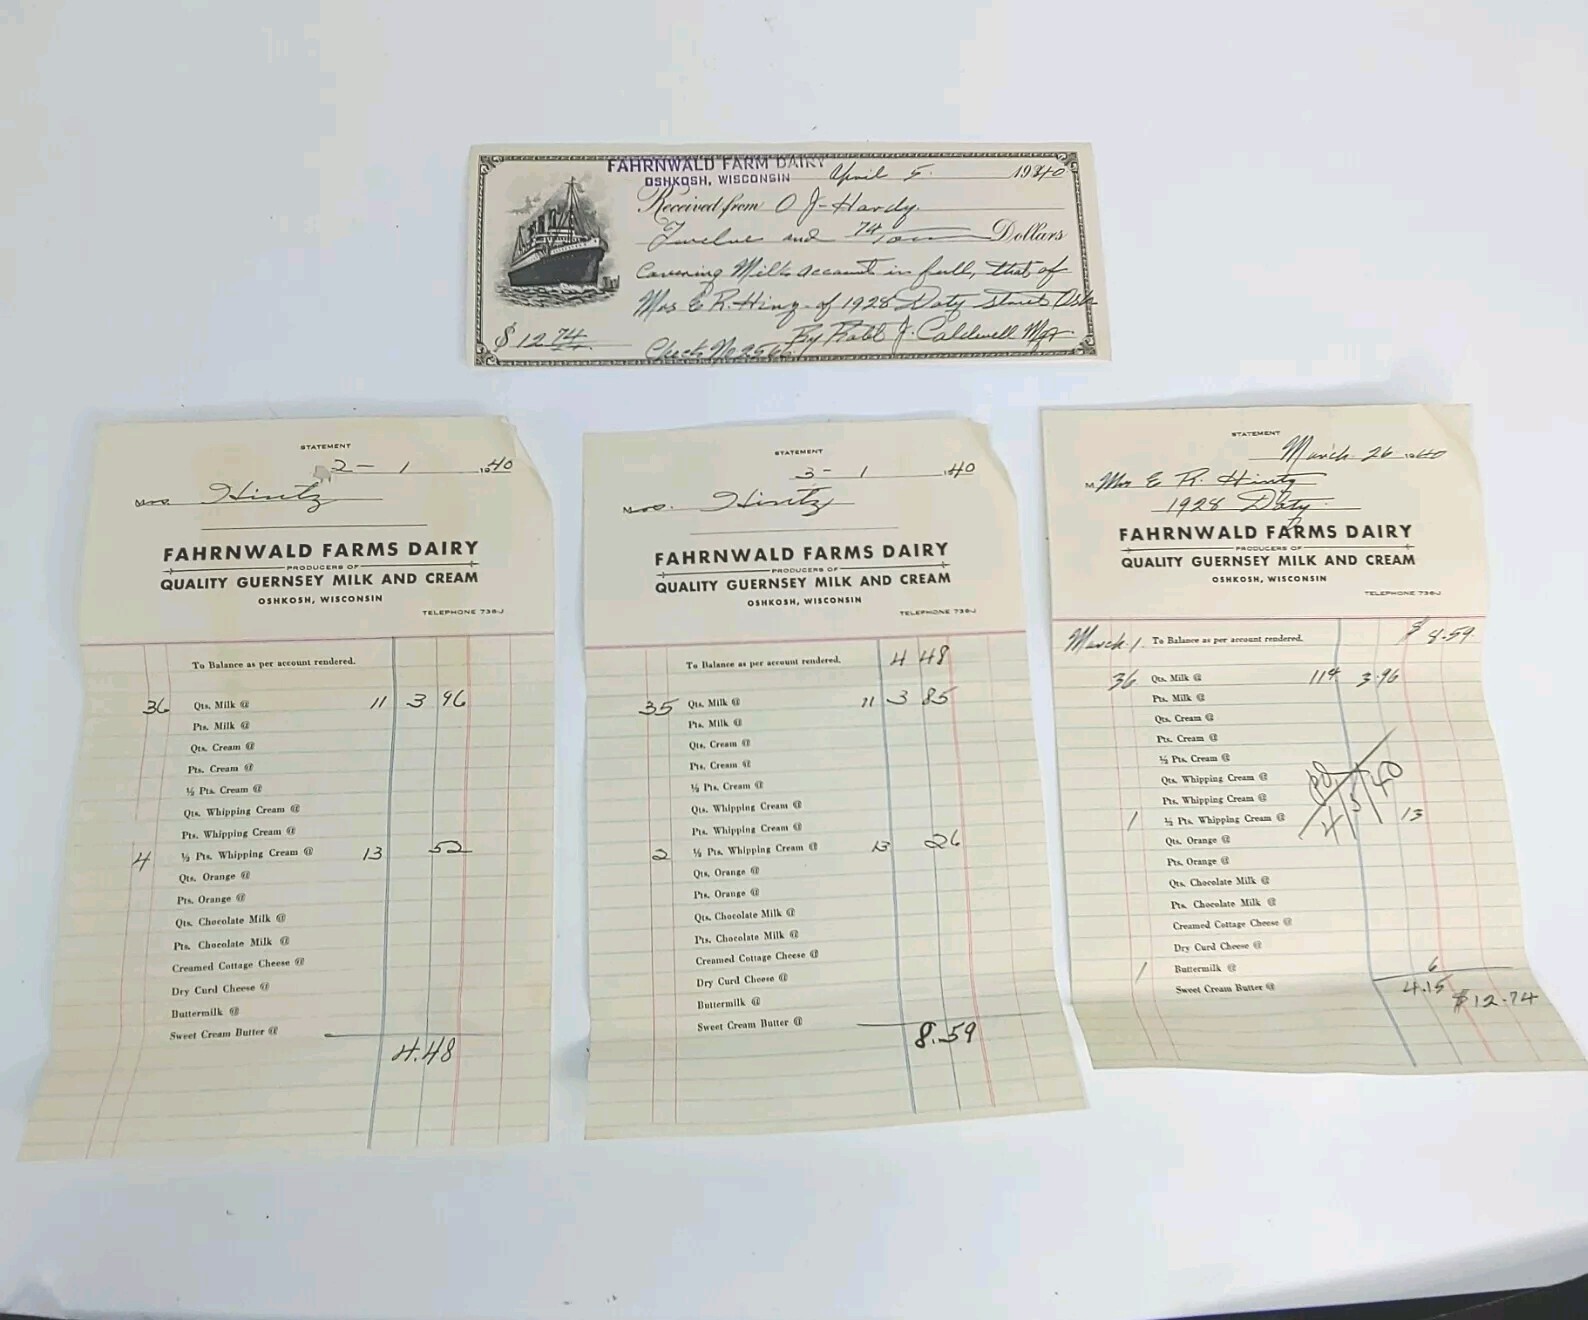 FAHRNWALD FARM DAIRY
OSHKOSH, WISCONSIN
April 5. 1940
Received from O J. Hardy.
Twelve and 74/100 Dollars
Covering Milk account in full, that of
Mrs E. R. Hinz of 1928 Doty Street Osh
$12.74 By Robt J. Caldwell Mgr.
Check No
STATEMENT
2-1 1940
Mrs Hintz
FAHRNWALD FARMS DAIRY
PRODUCERS OF
QUALITY GUERNSEY MILK AND CREAM
OSHKOSH, WISCONSIN
TELEPHONE 736-J
To Balance as per account rendered.
36 Qts. Milk @ 11 3 96
Pts. Milk @
Qts. Cream @
Pts. Cream @
½ Pts. Cream @
Qts. Whipping Cream @
Pts. Whipping Cream @
4 ½ Pts. Whipping Cream @ 13 52
Qts. Orange @
Pts. Orange @
Qts. Chocolate Milk @
Pts. Chocolate Milk @
Creamed Cottage Cheese @
Dry Curd Cheese @
Buttermilk @
Sweet Cream Butter @
4.48
STATEMENT
3-1 1940
Mrs. Hintz
FAHRNWALD FARMS DAIRY
PRODUCERS OF
QUALITY GUERNSEY MILK AND CREAM
OSHKOSH, WISCONSIN
TELEPHONE 736-J
To Balance as per account rendered. 4 48
35 Qts. Milk @ 11 3 85
Pts. Milk @
Qts. Cream @
Pts. Cream @
½ Pts. Cream @
Qts. Whipping Cream @
Pts. Whipping Cream @
2 ½ Pts. Whipping Cream @ 13 26
Qts. Orange @
Pts. Orange @
Qts. Chocolate Milk @
Pts. Chocolate Milk @
Creamed Cottage Cheese @
Dry Curd Cheese @
Buttermilk @
Sweet Cream Butter @
8.59
STATEMENT
March 26 1940
M. Mrs E. R. Hintz
1928 Doty.
FAHRNWALD FARMS DAIRY
PRODUCERS OF
QUALITY GUERNSEY MILK AND CREAM
OSHKOSH, WISCONSIN
TELEPHONE 736-J
March 1 To Balance as per account rendered. $ 8.59
36 Qts. Milk @ 11¢ 3.96
Pts. Milk @
Qts. Cream @
Pts. Cream @
½ Pts. Cream @
Qts. Whipping Cream @
Pts. Whipping Cream @
1 ½ Pts. Whipping Cream @ 13
Pd. 4/5/40
Qts. Orange @
Pts. Orange @
Qts. Chocolate Milk @
Pts. Chocolate Milk @
Creamed Cottage Cheese @
Dry Curd Cheese @
1 Buttermilk @ 6
Sweet Cream Butter @ 4.15
$12.74